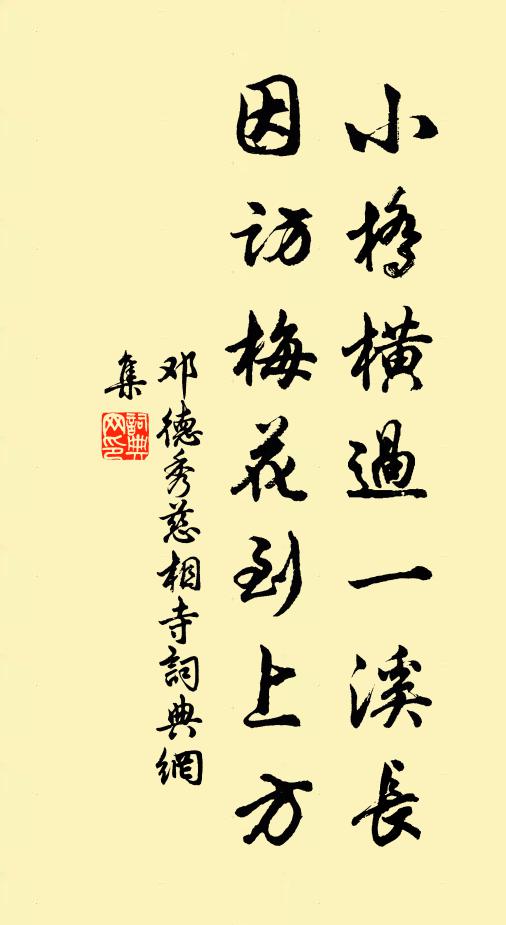 小橋橫過一溪長
因訪梅花到上方
邓德秀慈相寺詞典網
集
詞典
网印